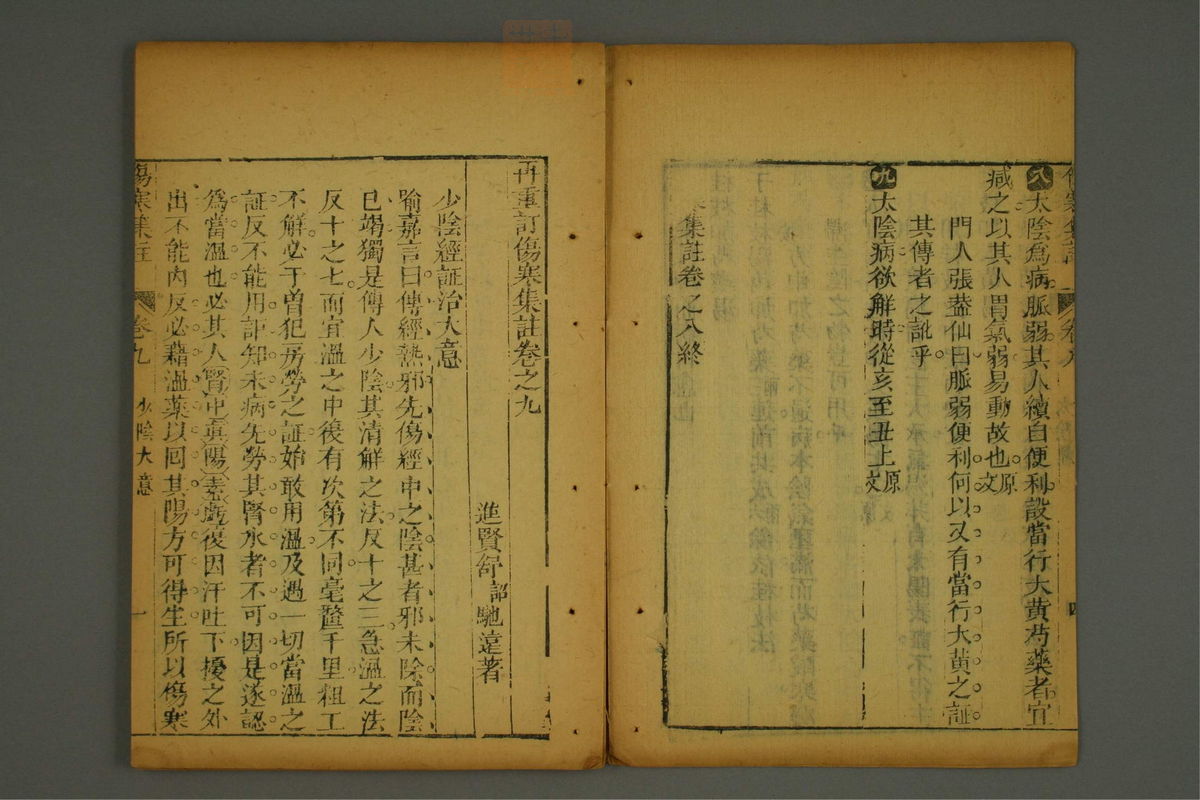 八太陰爲病脈弱其人續自便利設當行大黃芍藥者宜
減之以其人胃氣弱易動故也原文
門人張蓋仙曰脈弱便利何以又有當行大黃之証
其傳者之訛乎
九太陰病欲解時從亥至丑上原文
集註卷之八終
再重訂傷寒集註卷之九
進賢舒詔馳遠著
少陰經証治大意
喻嘉言曰傳經熱邪先傷經中之陰甚者邪未除而陰
已竭獨是傳人少陰其清解之法反十之三急溫之法
反十之七而宜溫之中復有次第不同毫釐千里粗工
不解必于曾犯房勞之証始敢用溫及遇一切當溫之
証反不能用詎知未病先勞其腎水者不可因是遂認
爲當溫也必其人腎中眞陽素虧復因汗吐下擾之外
出不能內反必藉溫藥以回其陽方可得生所以傷寒
傷寒集註
卷九
少陰大意
一